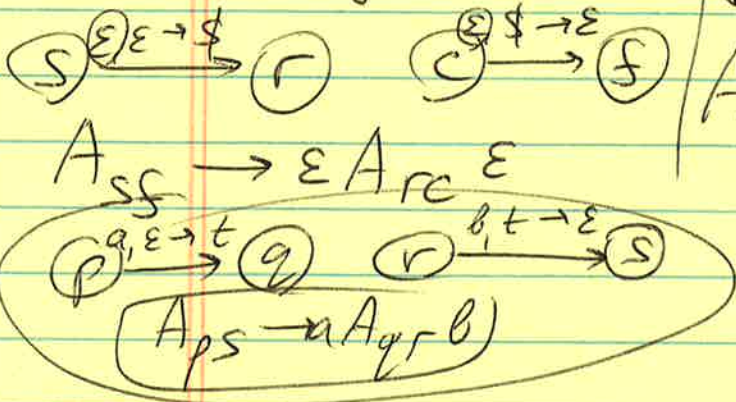 s ε, ε → $ r c ε, $ → ε f
A_sf → ε A_rc ε
p a, ε → t q r b, t → ε s
A_ps → a A_qr b